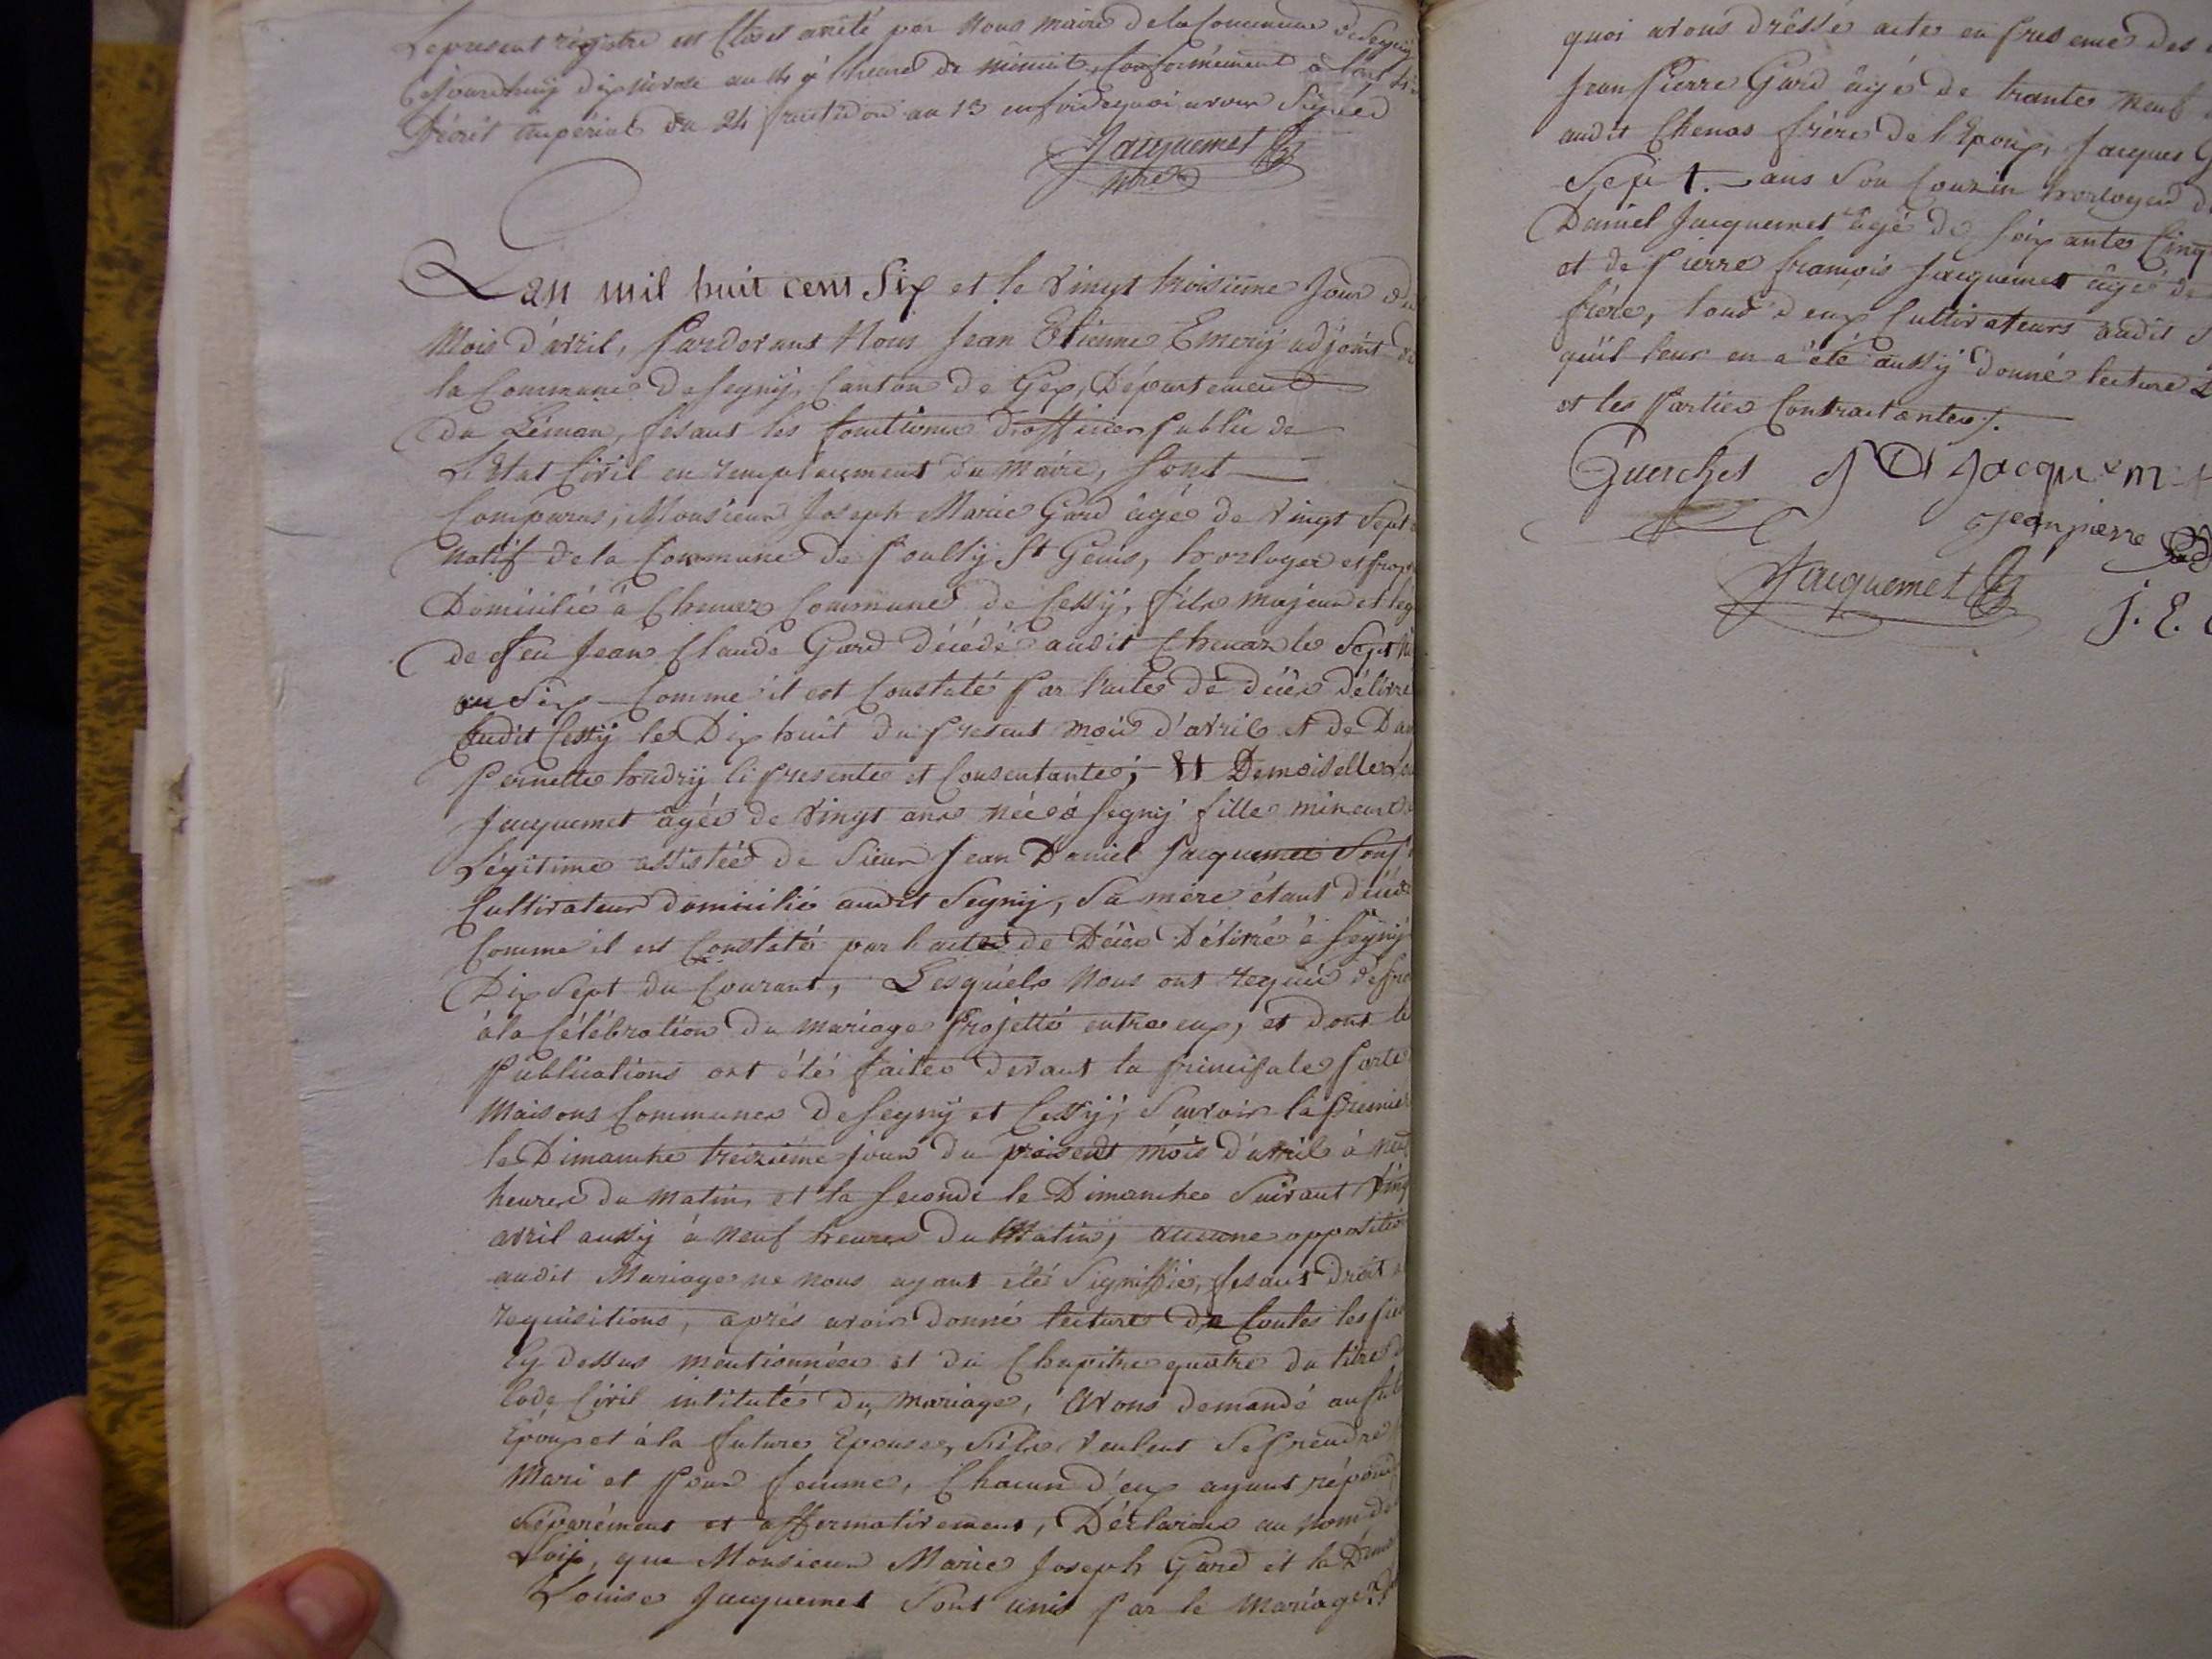 Le present régistre est Clos et arrêté par Nous maire de la Commune de Segny
Cejourdhuy dix Nivose an 14 à heure de minuit, Conformément à
Décrit impérial du 24 fructidor an 13 enfoidequoi avons Signé
Jacquemet
Mre
L'an mil huit cent Six et le Vingt troisieme Jour du
Mois d'avril, Pardevant Nous Jean Etienne Emery adjoint de
la Commune de Segny, Canton de Gex, Département
du Léman, fesant les fonctions d'officier Public de
L'Etat Civil en remplacement du maire, Sont
Comparus, Monsieur Joseph Marie Gard âgé de Vingt Sept
Natif de la Commune de Pouilly St Genis, horloger et prop
Domicilié à Chenaz Commune de Cessy, fils majeur et lég
de feu Jean Claude Gard décédé audit Chenaz le Sept Ni
an Six Comme il est Constaté Par l'acte de décès délivré
audit Cessy le Dix huit du present mois d'avril et de Dam
Pernette hudry ici presente et Consentante; Et Demoiselle Lou
Jacquemet âgée de Vingt ans née à Segny fille mineure
Légitime assistée de Sieur Jean Daniel Jacquemet Son P
Cultivateur domicilié audit Segny, Sa mère étant décédée
Comme il est Constaté par l'acte de Décès Délivré à Segny
Dix Sept du Courant, Lesquels Nous ont requis de pro
à la Célébration du mariage Projetté entre eux, et dont le
Publications ont été faites devant la principale Porte
Maisons Communes de Segny et Cessy, Savoir la premier
le Dimanche treizième jour du present mois d'avril à neuf
heures du matin, et la Seconde le Dimanche Suivant Vingt
avril aussy à Neuf heures du Matin; aucune oppositio
audit Mariage ne nous ayant été Signiffié, fesant Droit
requisitions, après avoir donné lecture de toutes les pie
Cy dessus mentionnées et du Chapitre quatre du titre d
Code Civil intitulé Du mariage, Avons demandé au futu
Epoux et à la future Epouse, S'ils Veulent Se Prendre
Mari et Pour femme, Chacun d'eux ayant répondu
Séparément et affermativement, Déclarons au Nom de
Loix, que Monsieur Marie Joseph Gard et la Demoi
Louise Jacquemet Sont unis Par le Mariage.
quoi avons dréssé acte en presence des
Jean Pierre Gard âgé de trante Neuf
audit Chenas frère de l'Epoux, Jacques G
Sept ans Son Couzin horloger
Daniel Jacquemet âgé de Soixante Cinq
et de Pierre françois Jacquemet âgé de
frère, tous deux Cultivateurs audit S
quil leur en a été aussy donné lecture
et les Parties Contractantes.
Jacquem
jean pierre
Jacquemet
J. E.